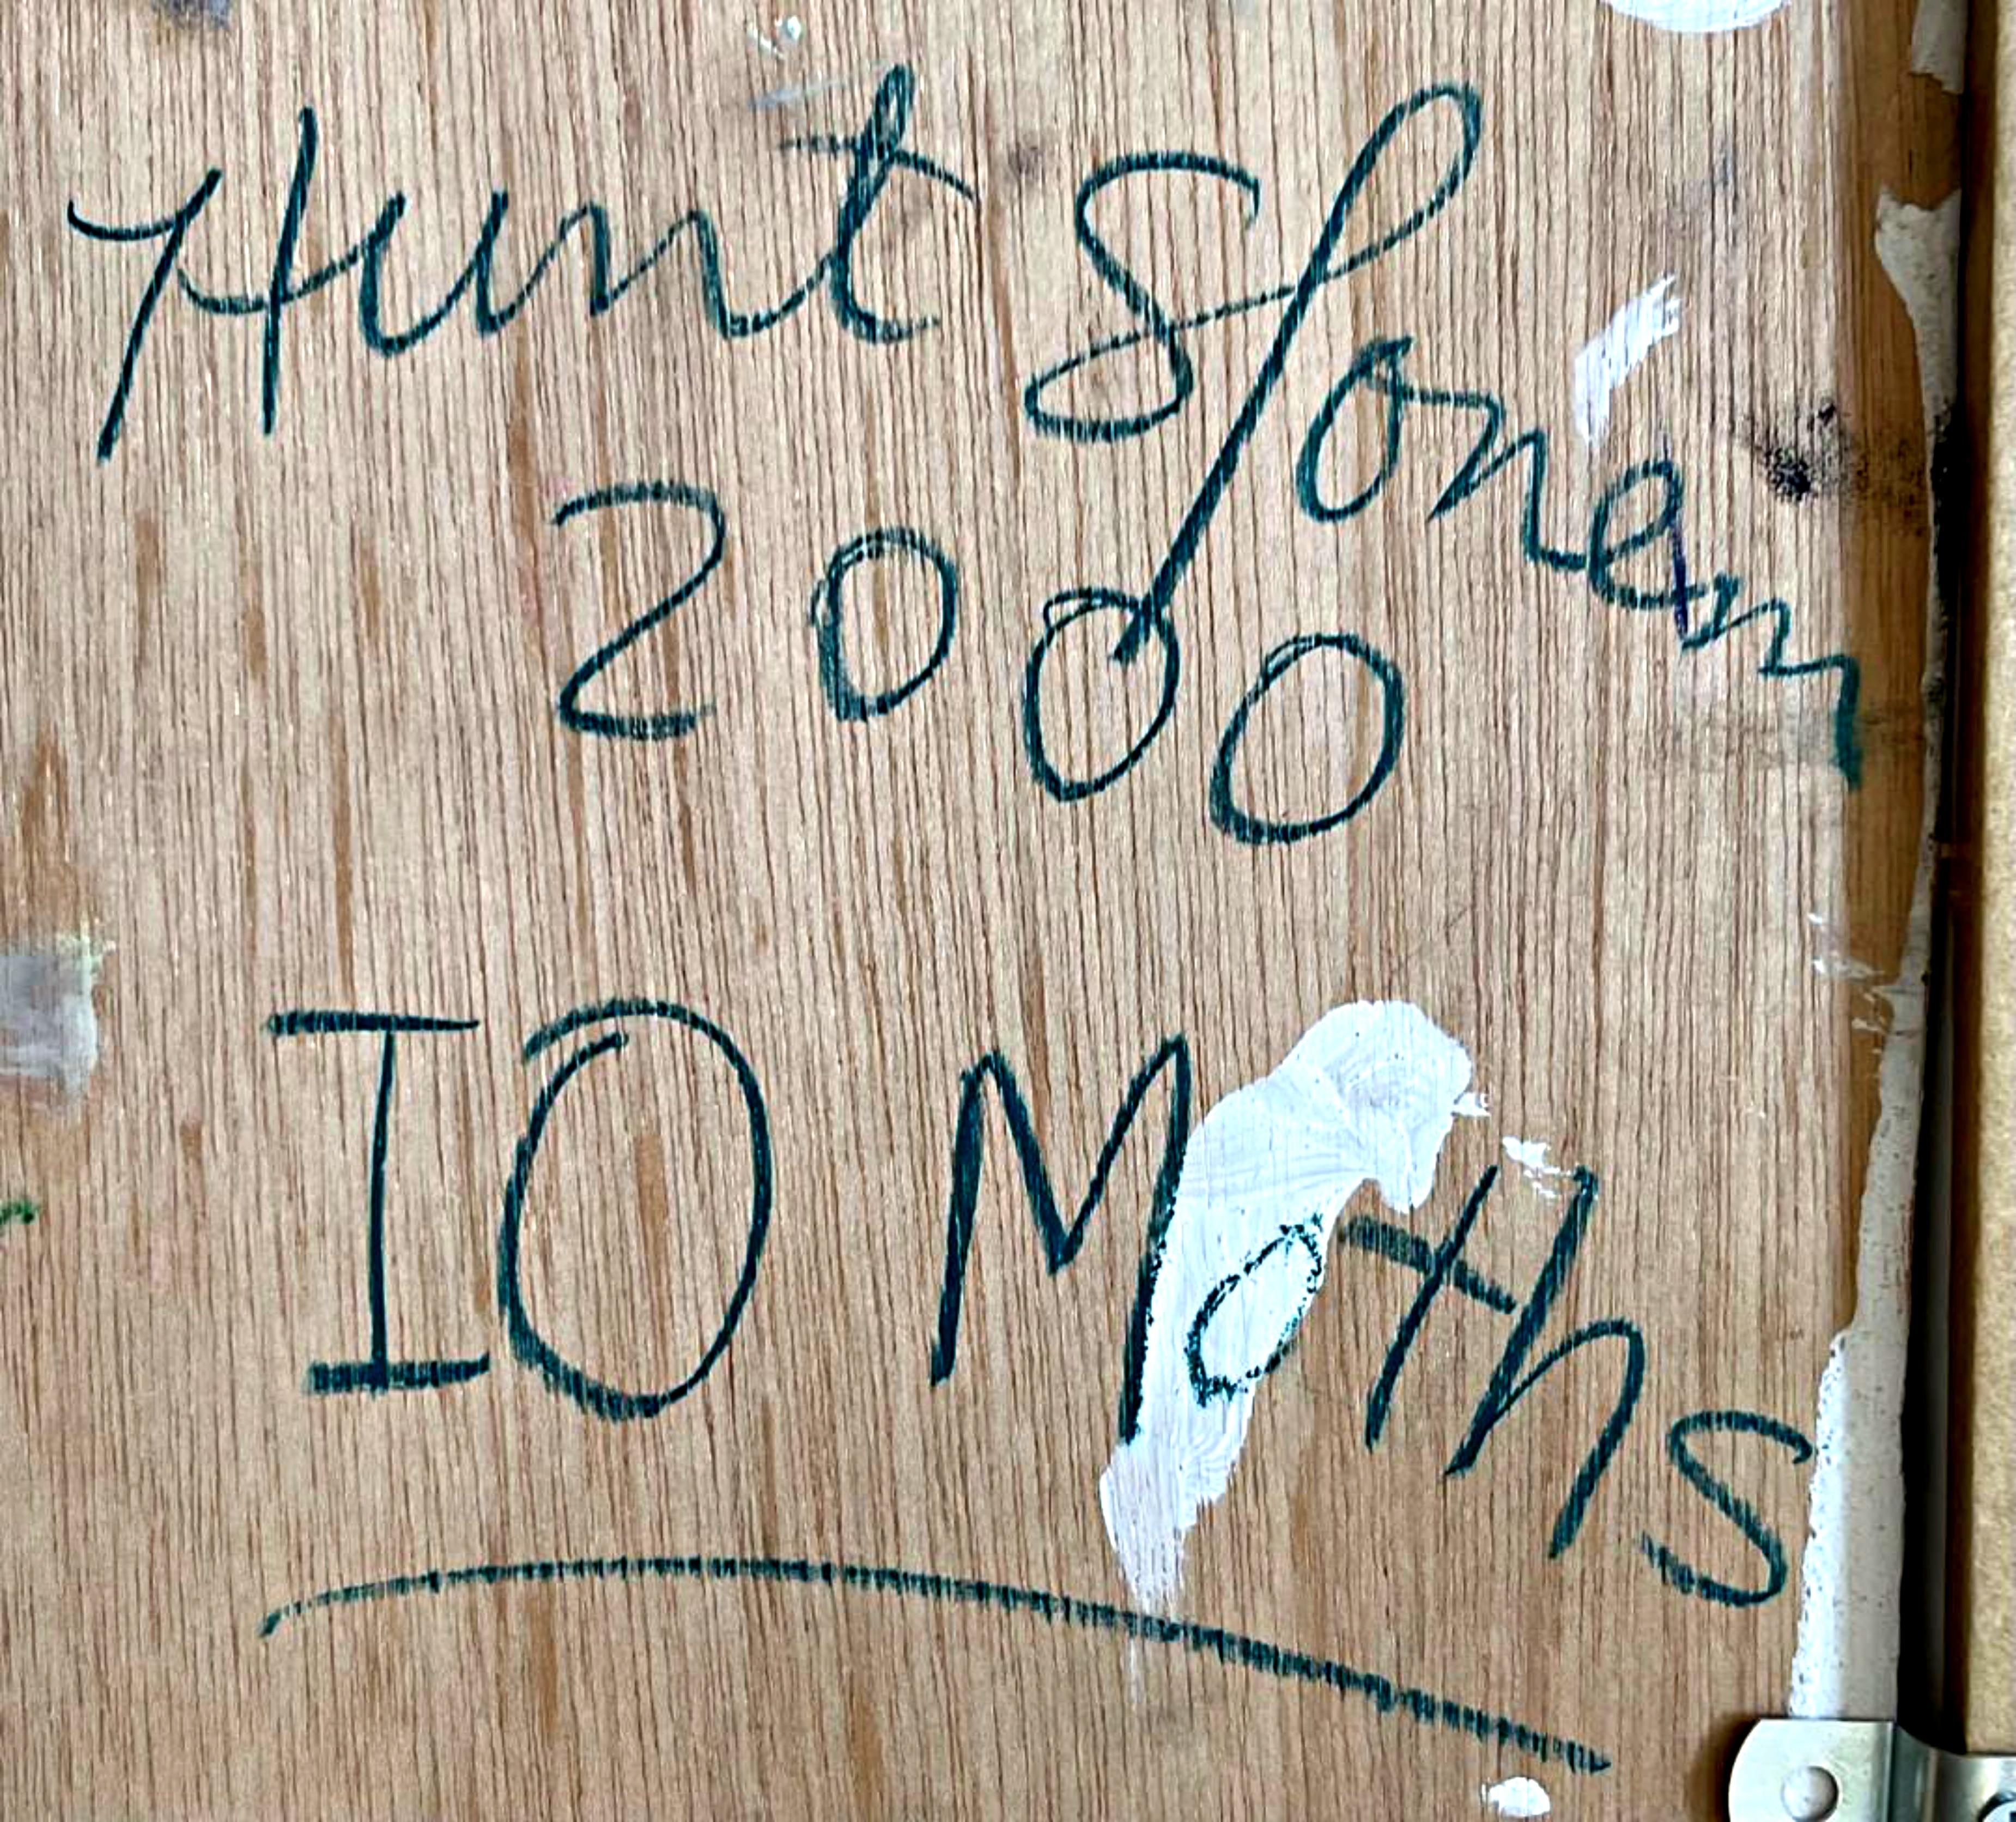 Hunt Slonem
2000
IO Moths